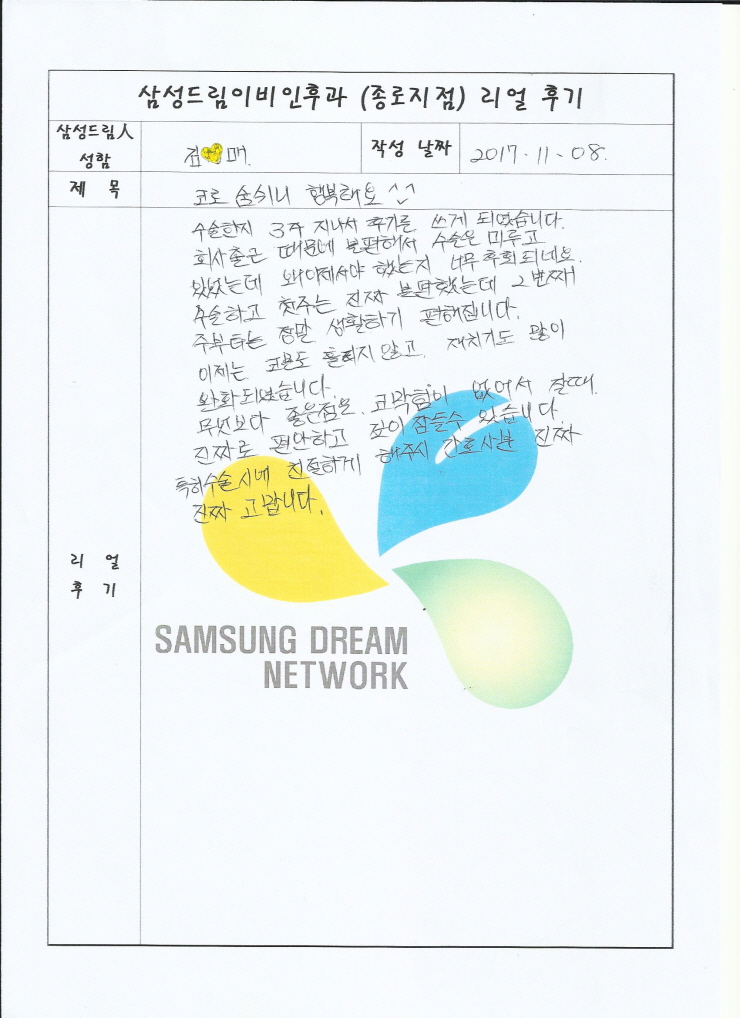 삼성드림이비인후과 (종로지점) 리얼 후기
삼성드림人
성함
김 매.
작성 날짜
2017.11.08.
제 목
코로 숨쉬니 행복해요 ^^
수술한지 3주 지나서 후기를 쓰게 되었습니다.
회사출근 때문에 불편해서 수술은 미루고
있었는데 왜이제서야 했는지 너무 후회되네요.
수술하고 첫주는 진짜 불편했는데 2번째
주부터는 정말 생활하기 편해집니다.
이제는 콧물도 흘리지 않고, 재치기도 많이
완화되었습니다.
무엇보다 좋은점은 코막힘이 없어서 잘때
진짜로 편안하고 깊이 잠들수 있습니다.
특히수술시에 친절하게 해주시 간호사분 진짜
진짜 고맙니다.
리 얼
후 기
SAMSUNG DREAM
NETWORK